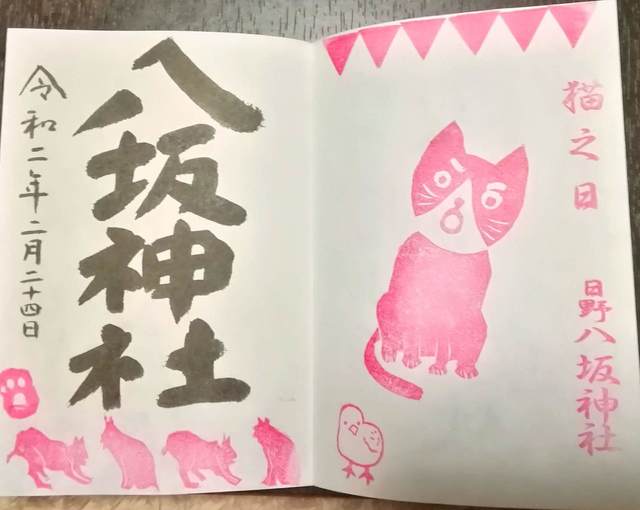 猫之日
日野八坂神社
八坂神社
令和二年二月二十四日